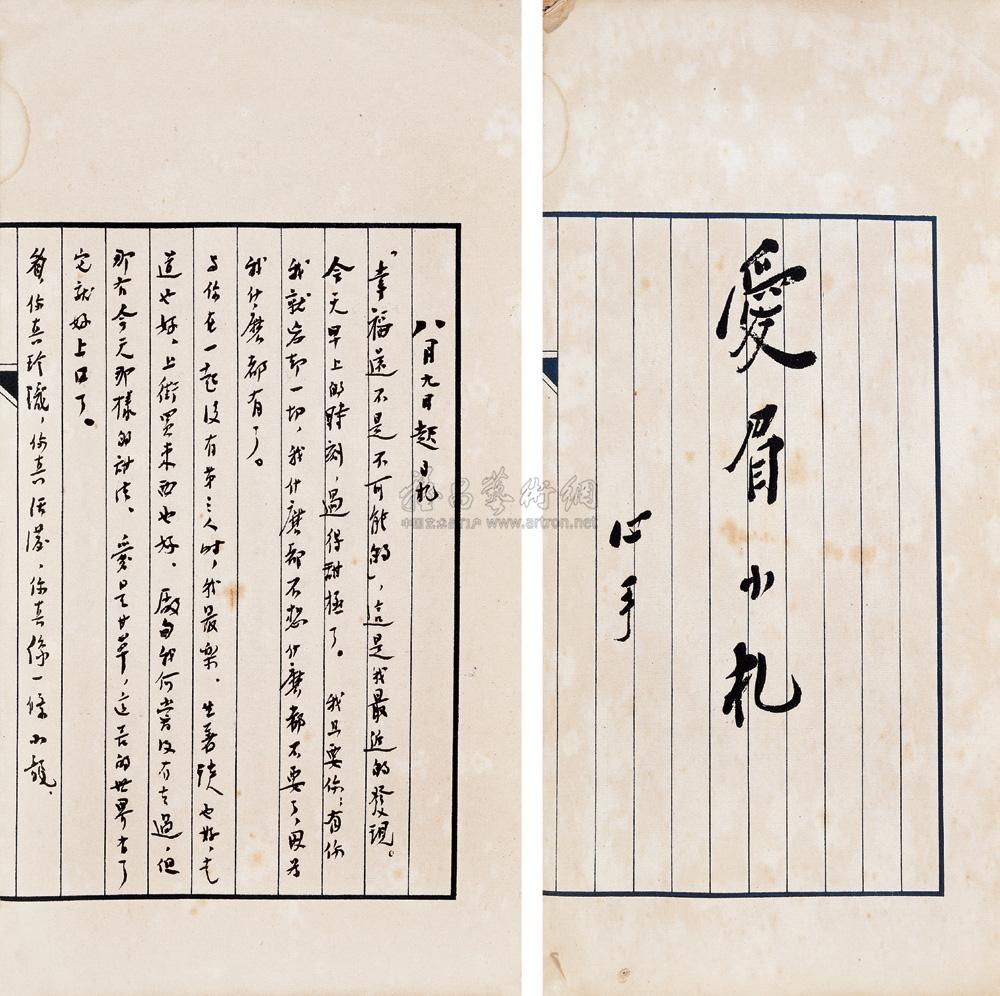 愛眉小札
心手
八月九日起小札
“幸福還不是不可能的”，這是我最近的發現。
今天早上的時刻，過得甜極了。 我只要你；有你
我就忘却一切，我什麽都不想什麽都不要了，因为
我什麽都有了。
与你在一起沒有第三人時，我最樂。坐着談也好，走
道也好，上街買東西也好。廠甸我何嘗沒有去過，但
那有今天那樣的甜法。 愛是甘草，這苦的世界有了
它就好上口了。
眉你真玲瓏，你真活潑，你真像一條小龍。
雅昌藝術網
中国艺术品门户 www.artron.net